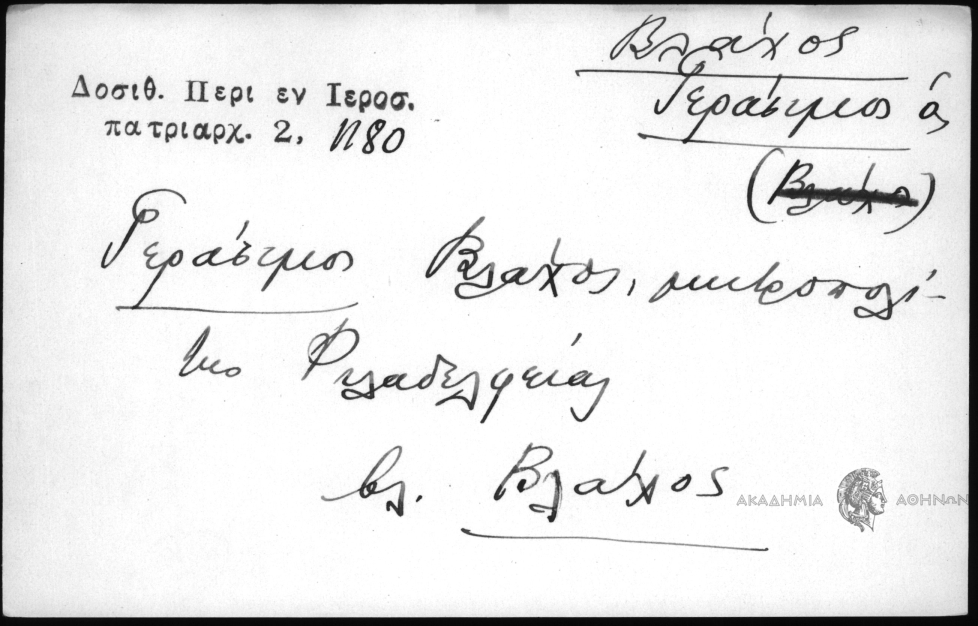 Βλάχος
Γεράσιμος ὁ
(Βλάχος)
Δοσιθ. Περι εν Ιεροσ.
πατριαρχ. 2, 1180
Γεράσιμος Βλάχος, μητροπολί-
της Φιλαδελφείας
βλ. Βλάχος
ΑΚΑΔΗΜΙΑ ΑΘΗΝΩΝ